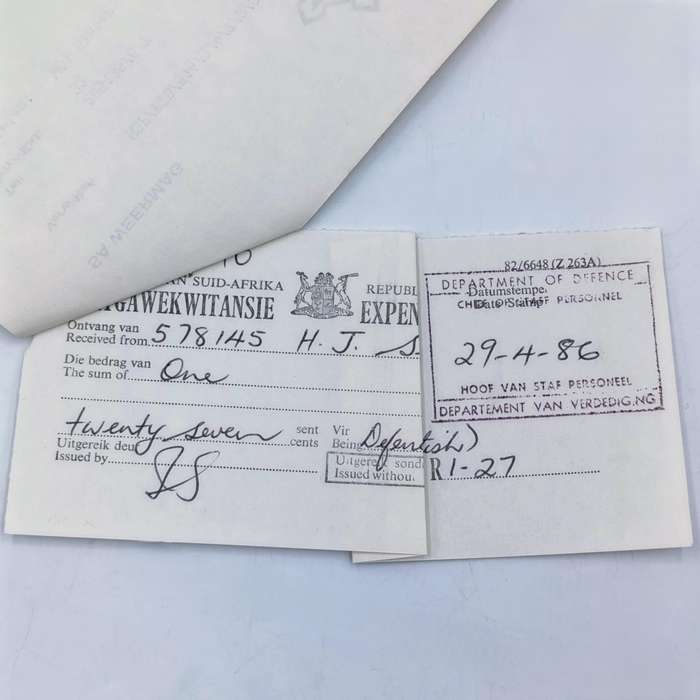 SA WEERMAG
SUID-AFRIKA
REPUBL
GAWEKWITANSIE
EXPEN
Ontvang van
Received from 578145 H. J. S
Die bedrag van
The sum of One
twenty seven sent
cents
Vir
Being
Uitgereik deur
Issued by
Uitgereik sond
Issued withou
82/6648 (Z 263A)
DEPARTMENT OF DEFENCE
Datumstempel
Date Stamp
CHIEF OF STAFF PERSONNEL
29-4-86
HOOF VAN STAF PERSONEEL
DEPARTEMENT VAN VERDEDIGING
R 1-27